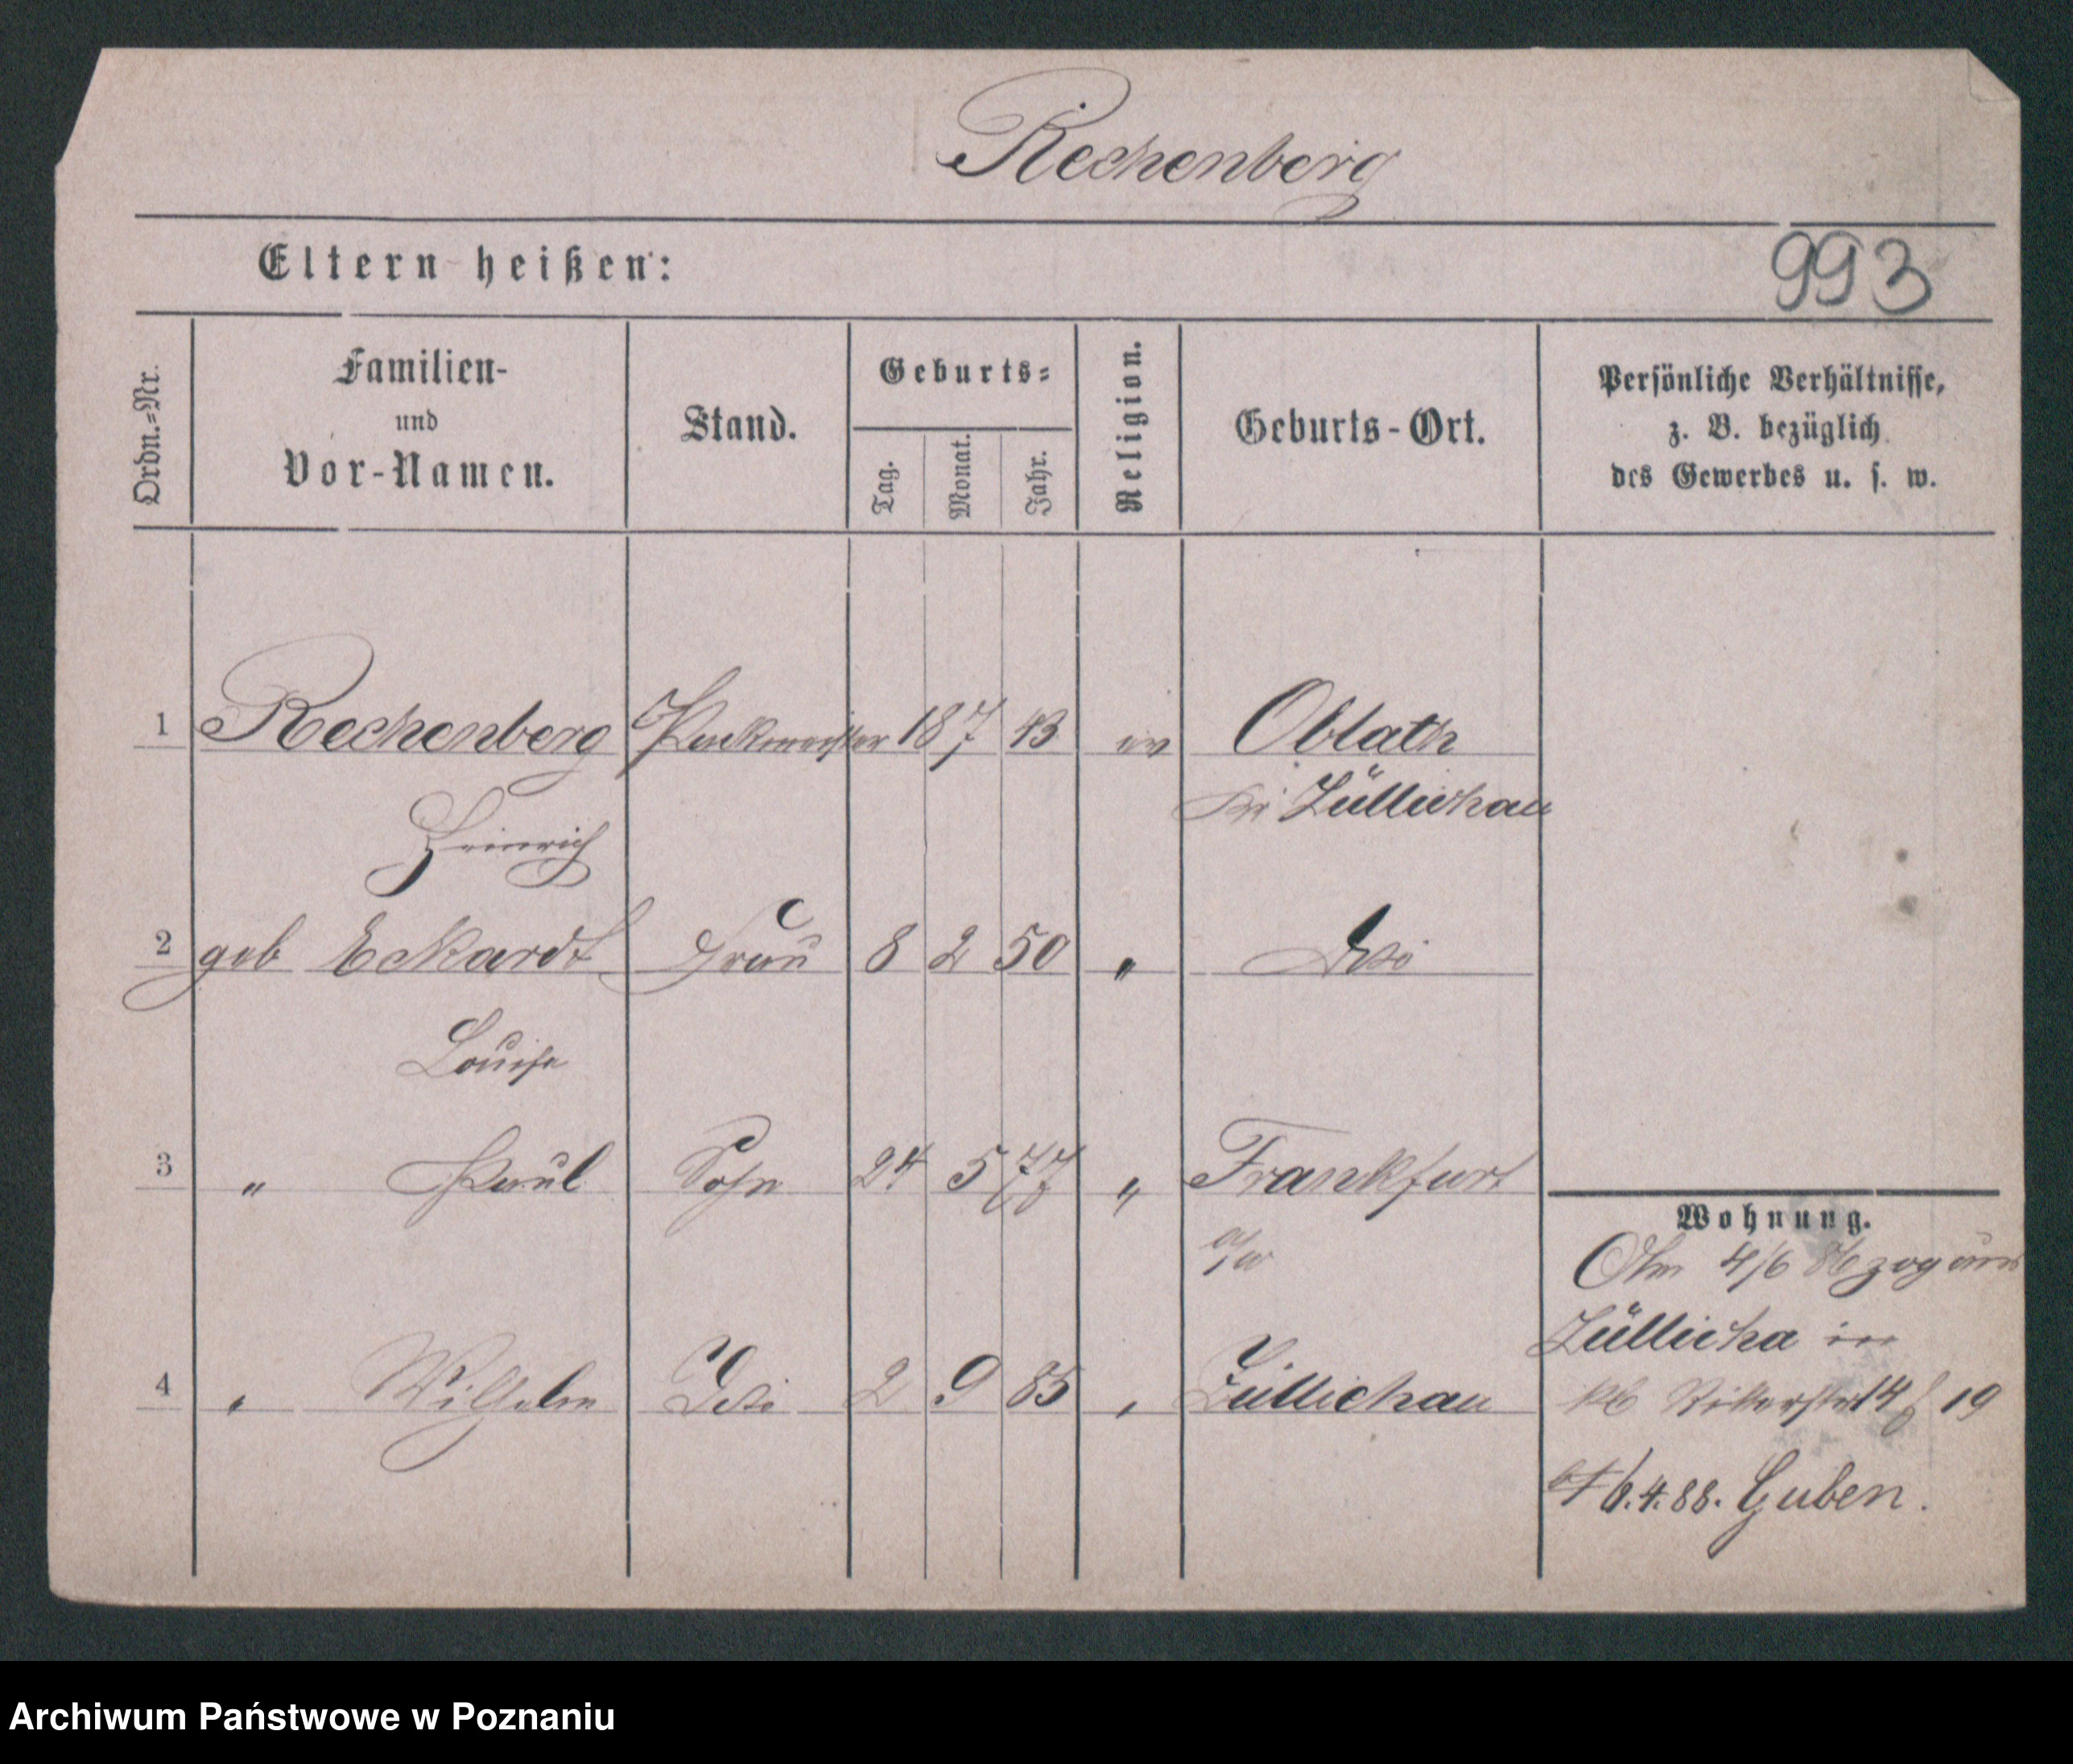 Rechenberg
Eltern heißen:
993
Ordn.=Nr.
Familien-
und
Vor-Namen.
Stand.
Geburts=
Tag.
Monat.
Jahr.
Religion.
Geburts-Ort.
Persönliche Verhältnisse,
z. B. bezüglich
des Gewerbes u. s. w.
1 Rechenberg Packmeister 18 7 43 ev Oblath
Kr Züllichau
Heinrich
2 geb Eckardt Frau 8 2 50 " Dto
Louise
3 " Paul Sohn 24 5 77 " Frankfurt
a/o
4 " Wilhelm Dto 2 9 85 " Züllichau
Wohnung.
Am 4/6 86 zog aus
Züllicha in
Ritterstr 14 19
6.4.88. Guben.
Archiwum Państwowe w Poznaniu